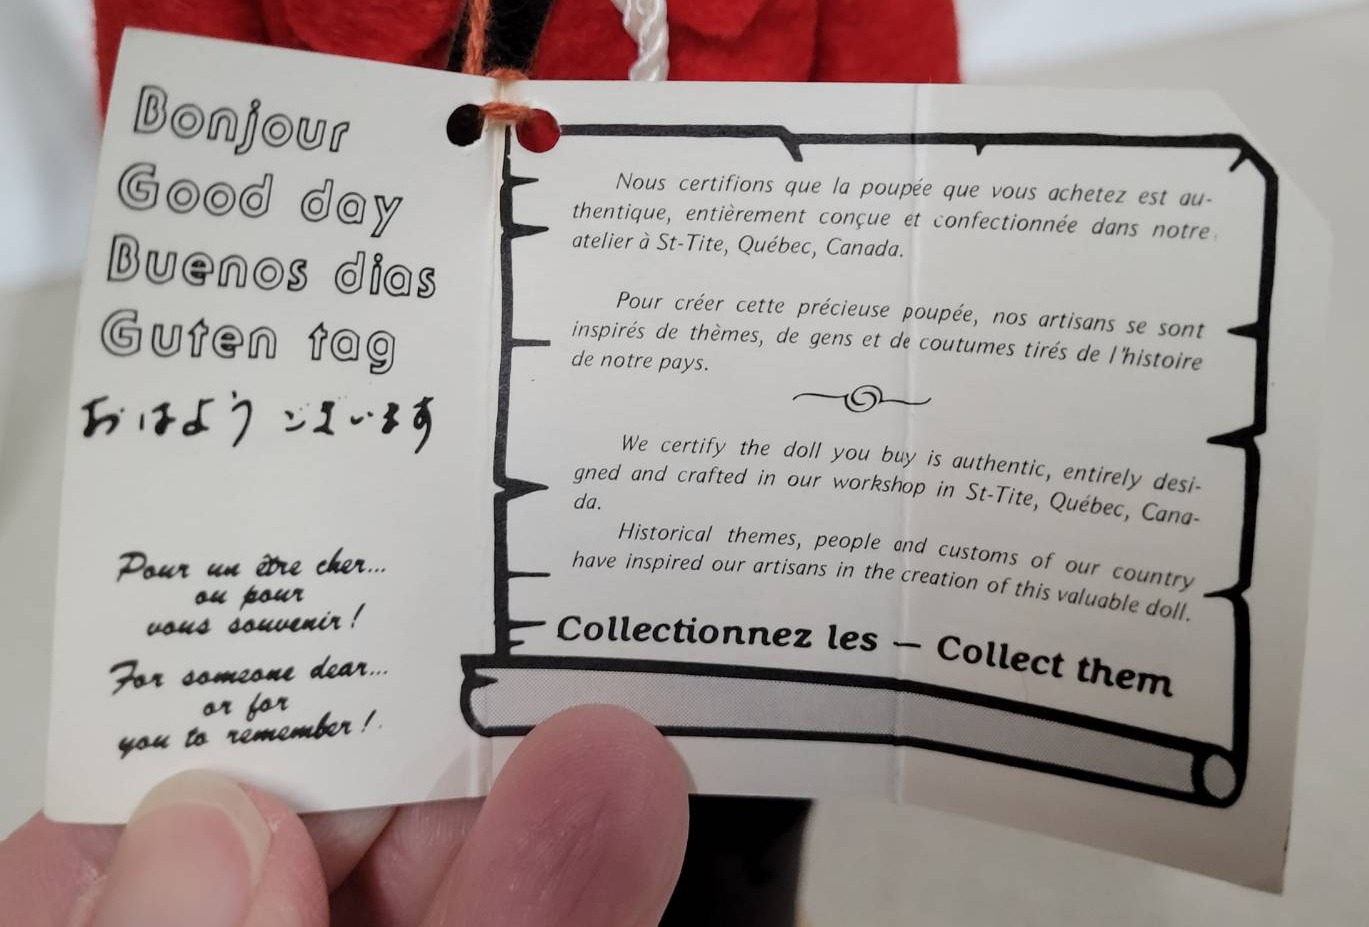 Bonjour
Good day
Buenos dias
Guten tag
おはようございます
Pour un être cher...
ou pour
vous souvenir!
For someone dear...
or for
you to remember!
Nous certifions que la poupée que vous achetez est au-
thentique, entièrement conçue et confectionnée dans notre
atelier à St-Tite, Québec, Canada.
Pour créer cette précieuse poupée, nos artisans se sont
inspirés de thèmes, de gens et de coutumes tirés de l'histoire
de notre pays.
We certify the doll you buy is authentic, entirely desi-
gned and crafted in our workshop in St-Tite, Québec, Cana-
da.
Historical themes, people and customs of our country
have inspired our artisans in the creation of this valuable doll.
Collectionnez les — Collect them